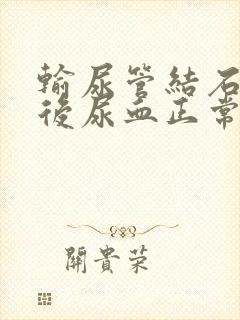 輸尿管結石
後尿血正常
關貴榮